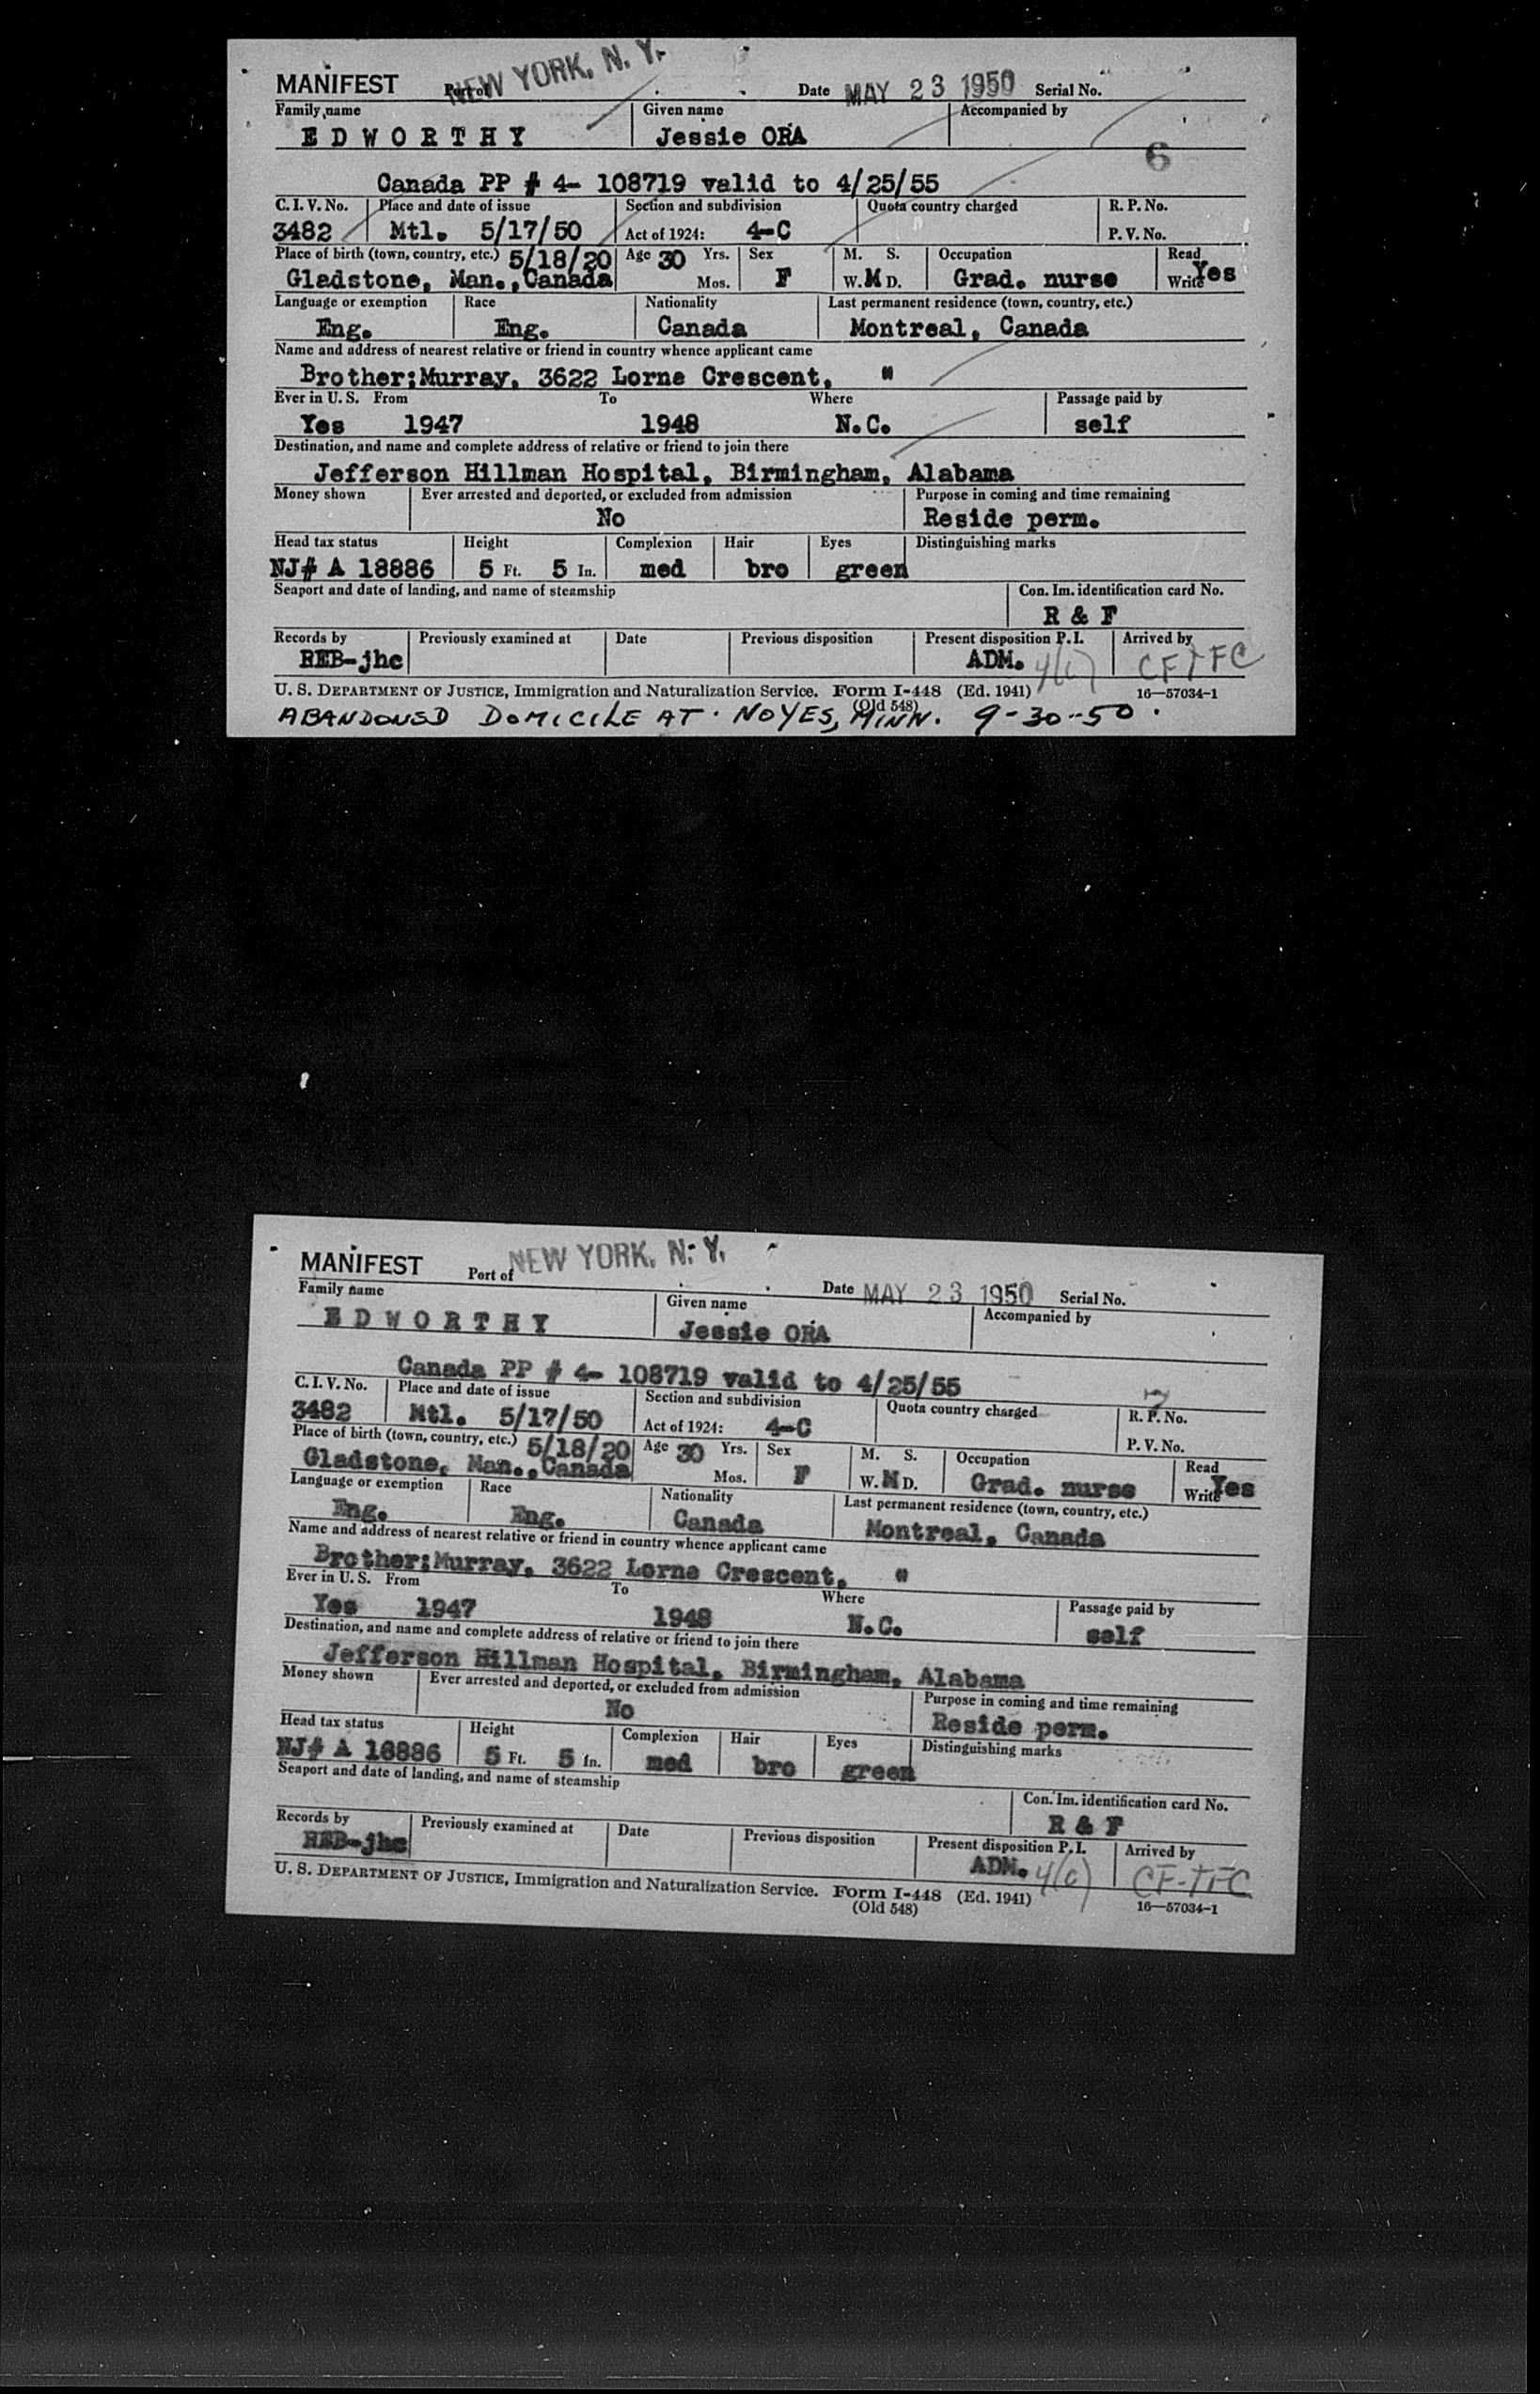 MANIFEST Port of NEW YORK, N. Y. Date MAY 23 1950 Serial No.
Family name Given name Accompanied by
EDWORTHY Jessie ORA
6
Canada PP # 4- 108719 valid to 4/25/55
C. I. V. No. Place and date of issue Section and subdivision Quota country charged R. P. No.
3482 Mtl. 5/17/50 Act of 1924: 4-C P. V. No.
Place of birth (town, country, etc.) 5/18/20 Age 30 Yrs. Sex M. S. Occupation Read
Gladstone, Man., Canada Mos. F W. M D. Grad. nurse Write Yes
Language or exemption Race Nationality Last permanent residence (town, country, etc.)
Eng. Eng. Canada Montreal, Canada
Name and address of nearest relative or friend in country whence applicant came
Brother:Murray, 3622 Lorne Crescent, "
Ever in U. S. From To Where Passage paid by
Yes 1947 1948 N.C. self
Destination, and name and complete address of relative or friend to join there
Jefferson Hillman Hospital, Birmingham, Alabama
Money shown Ever arrested and deported, or excluded from admission Purpose in coming and time remaining
No Reside perm.
Head tax status Height Complexion Hair Eyes Distinguishing marks
NJ# A 18886 5 Ft. 5 In. med bro green
Seaport and date of landing, and name of steamship Con. Im. identification card No.
R & F
Records by Previously examined at Date Previous disposition Present disposition P.I. Arrived by
REB-jhc ADM. 4(c)
U. S. DEPARTMENT OF JUSTICE, Immigration and Naturalization Service. Form I-448 (Ed. 1941) 16—57034-1
(Old 548)
ABANDONED DOMICILE AT NOYES, MINN. 9-30-50.
MANIFEST Port of NEW YORK, N. Y. Date MAY 23 1950 Serial No.
Family name Given name Accompanied by
EDWORTHY Jessie ORA
Canada PP # 4- 108719 valid to 4/25/55
C. I. V. No. Place and date of issue Section and subdivision Quota country charged R. P. No.
3482 Mtl. 5/17/50 Act of 1924: 4-C P. V. No.
Place of birth (town, country, etc.) 5/18/20 Age 30 Yrs. Sex M. S. Occupation Read
Gladstone, Man., Canada Mos. F W. M D. Grad. nurse Write Yes
Language or exemption Race Nationality Last permanent residence (town, country, etc.)
Eng. Eng. Canada Montreal, Canada
Name and address of nearest relative or friend in country whence applicant came
Brother:Murray, 3622 Lorne Crescent, "
Ever in U. S. From To Where Passage paid by
Yes 1947 1948 N.C. self
Destination, and name and complete address of relative or friend to join there
Jefferson Hillman Hospital, Birmingham, Alabama
Money shown Ever arrested and deported, or excluded from admission Purpose in coming and time remaining
No Reside perm.
Head tax status Height Complexion Hair Eyes Distinguishing marks
NJ# A 18886 5 Ft. 5 In. med bro green
Seaport and date of landing, and name of steamship Con. Im. identification card No.
R & F
Records by Previously examined at Date Previous disposition Present disposition P.I. Arrived by
REB-jhc ADM. 4(c)
U. S. DEPARTMENT OF JUSTICE, Immigration and Naturalization Service. Form I-448 (Ed. 1941) 16—57034-1
(Old 548)